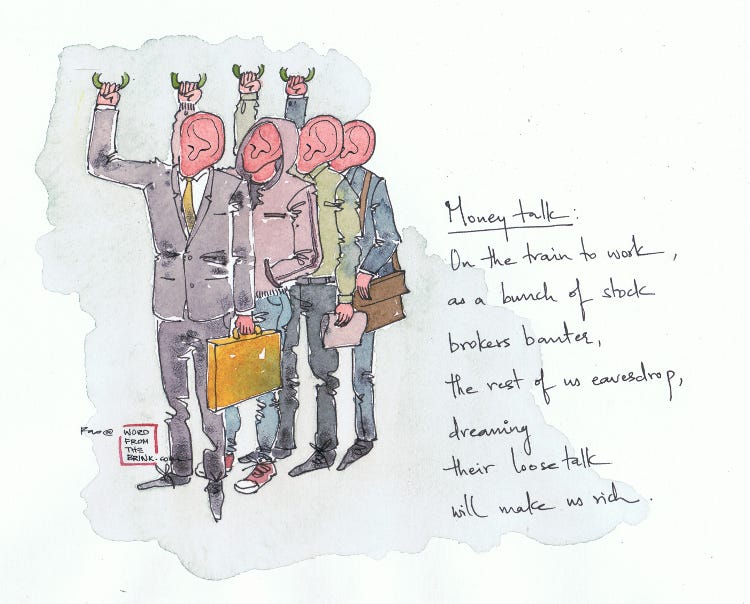 Money talk:
On the train to work,
as a bunch of stock
brokers banter,
the rest of us eavesdrop,
dreaming
their loose talk
will make us rich.
@ WORD
FROM
THE
BRINK.com